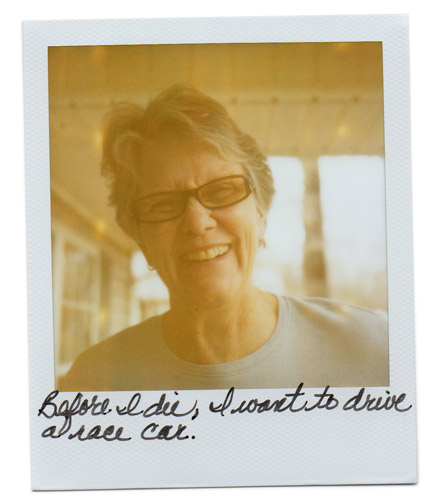 Before I die, I want to drive
a race car.